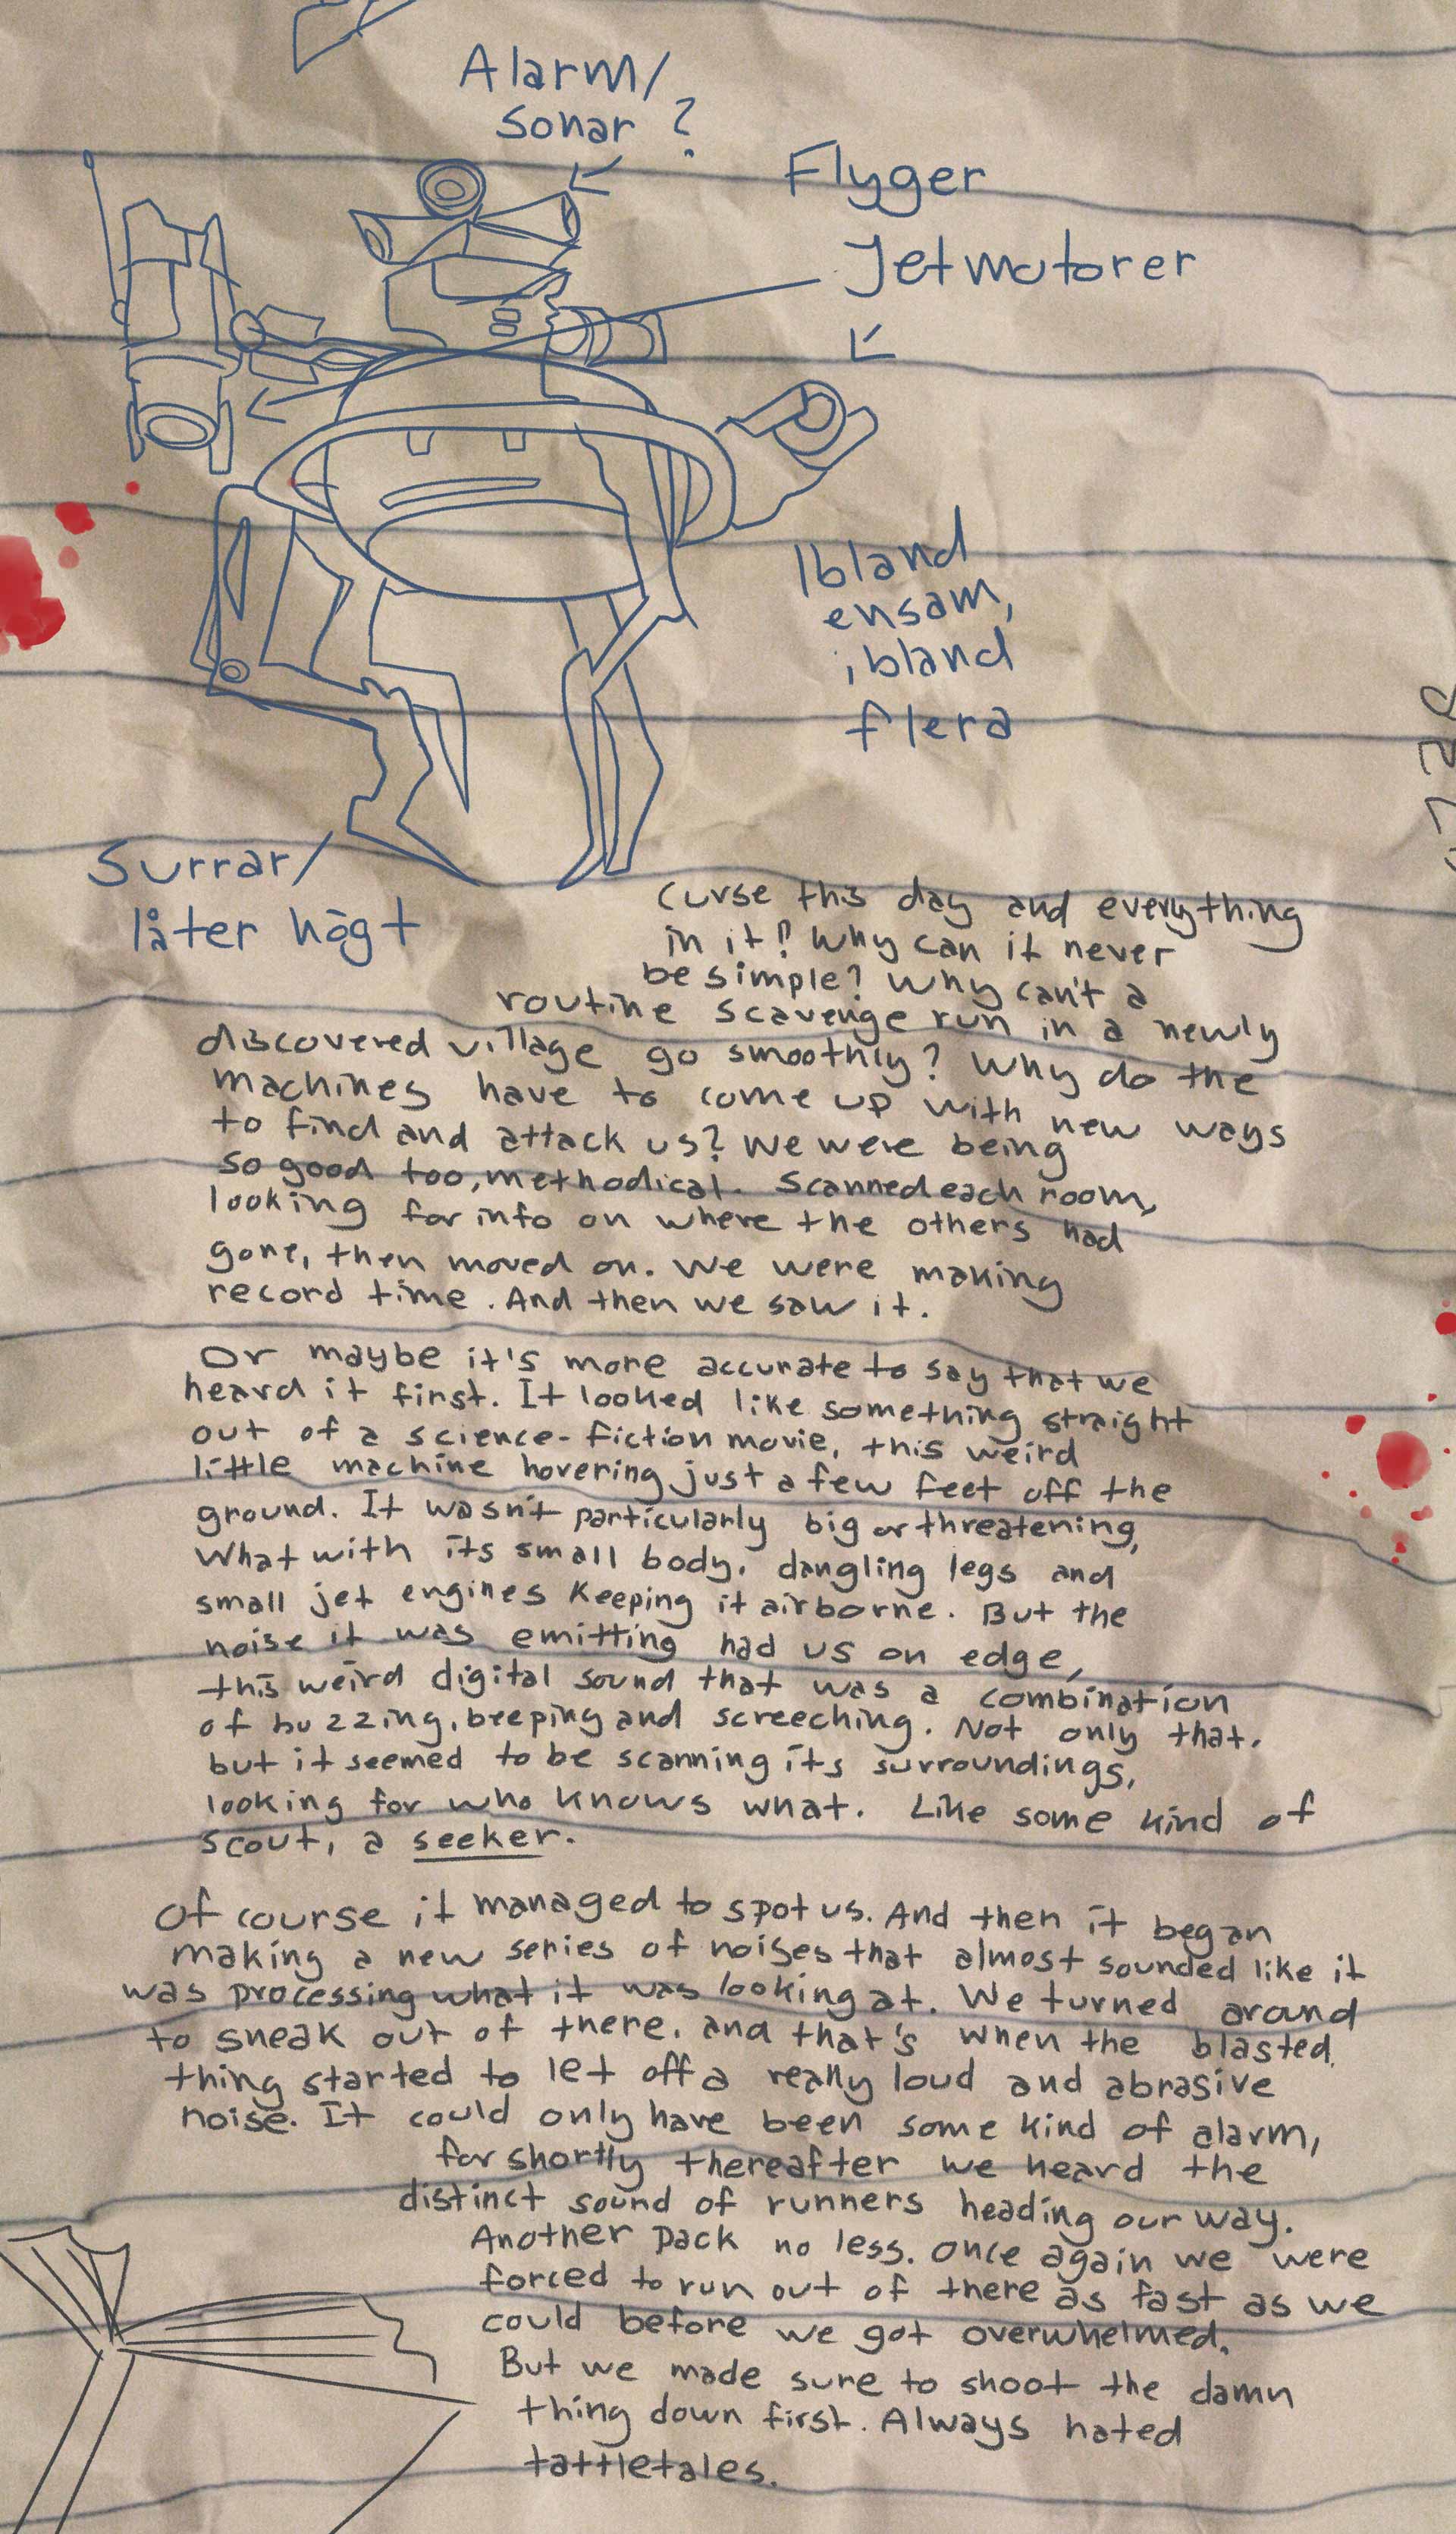 Alarm/
Sonar ?
Flyger
Jetmotorer
Ibland
ensam,
ibland
flera
Surrar/
låter högt
Curse this day and everything
in it! Why can it never
be simple? Why can't a
routine scavenge run in a newly
discovered village go smoothly? Why do the
machines have to come up with new ways
to find and attack us? We were being
so good too, methodical. Scanned each room,
looking for info on where the others had
gone, then moved on. We were making
record time. And then we saw it.
Or maybe it's more accurate to say that we
heard it first. It looked like something straight
out of a science-fiction movie, this weird
little machine hovering just a few feet off the
ground. It wasn't particularly big or threatening,
What with its small body, dangling legs and
small jet engines keeping it airborne. But the
noise it was emitting had us on edge,
this weird digital sound that was a combination
of buzzing, beeping and screeching. Not only that,
but it seemed to be scanning its surroundings,
looking for who knows what. Like some kind of
scout, a seeker.
Of course it managed to spot us. And then it began
making a new series of noises that almost sounded like it
was processing what it was looking at. We turned around
to sneak out of there, and that's when the blasted
thing started to let off a really loud and abrasive
noise. It could only have been some kind of alarm,
for shortly thereafter we heard the
distinct sound of runners heading our way.
Another pack no less. Once again we were
forced to run out of there as fast as we
could before we got overwhelmed.
But we made sure to shoot the damn
thing down first. Always hated
tattletales.